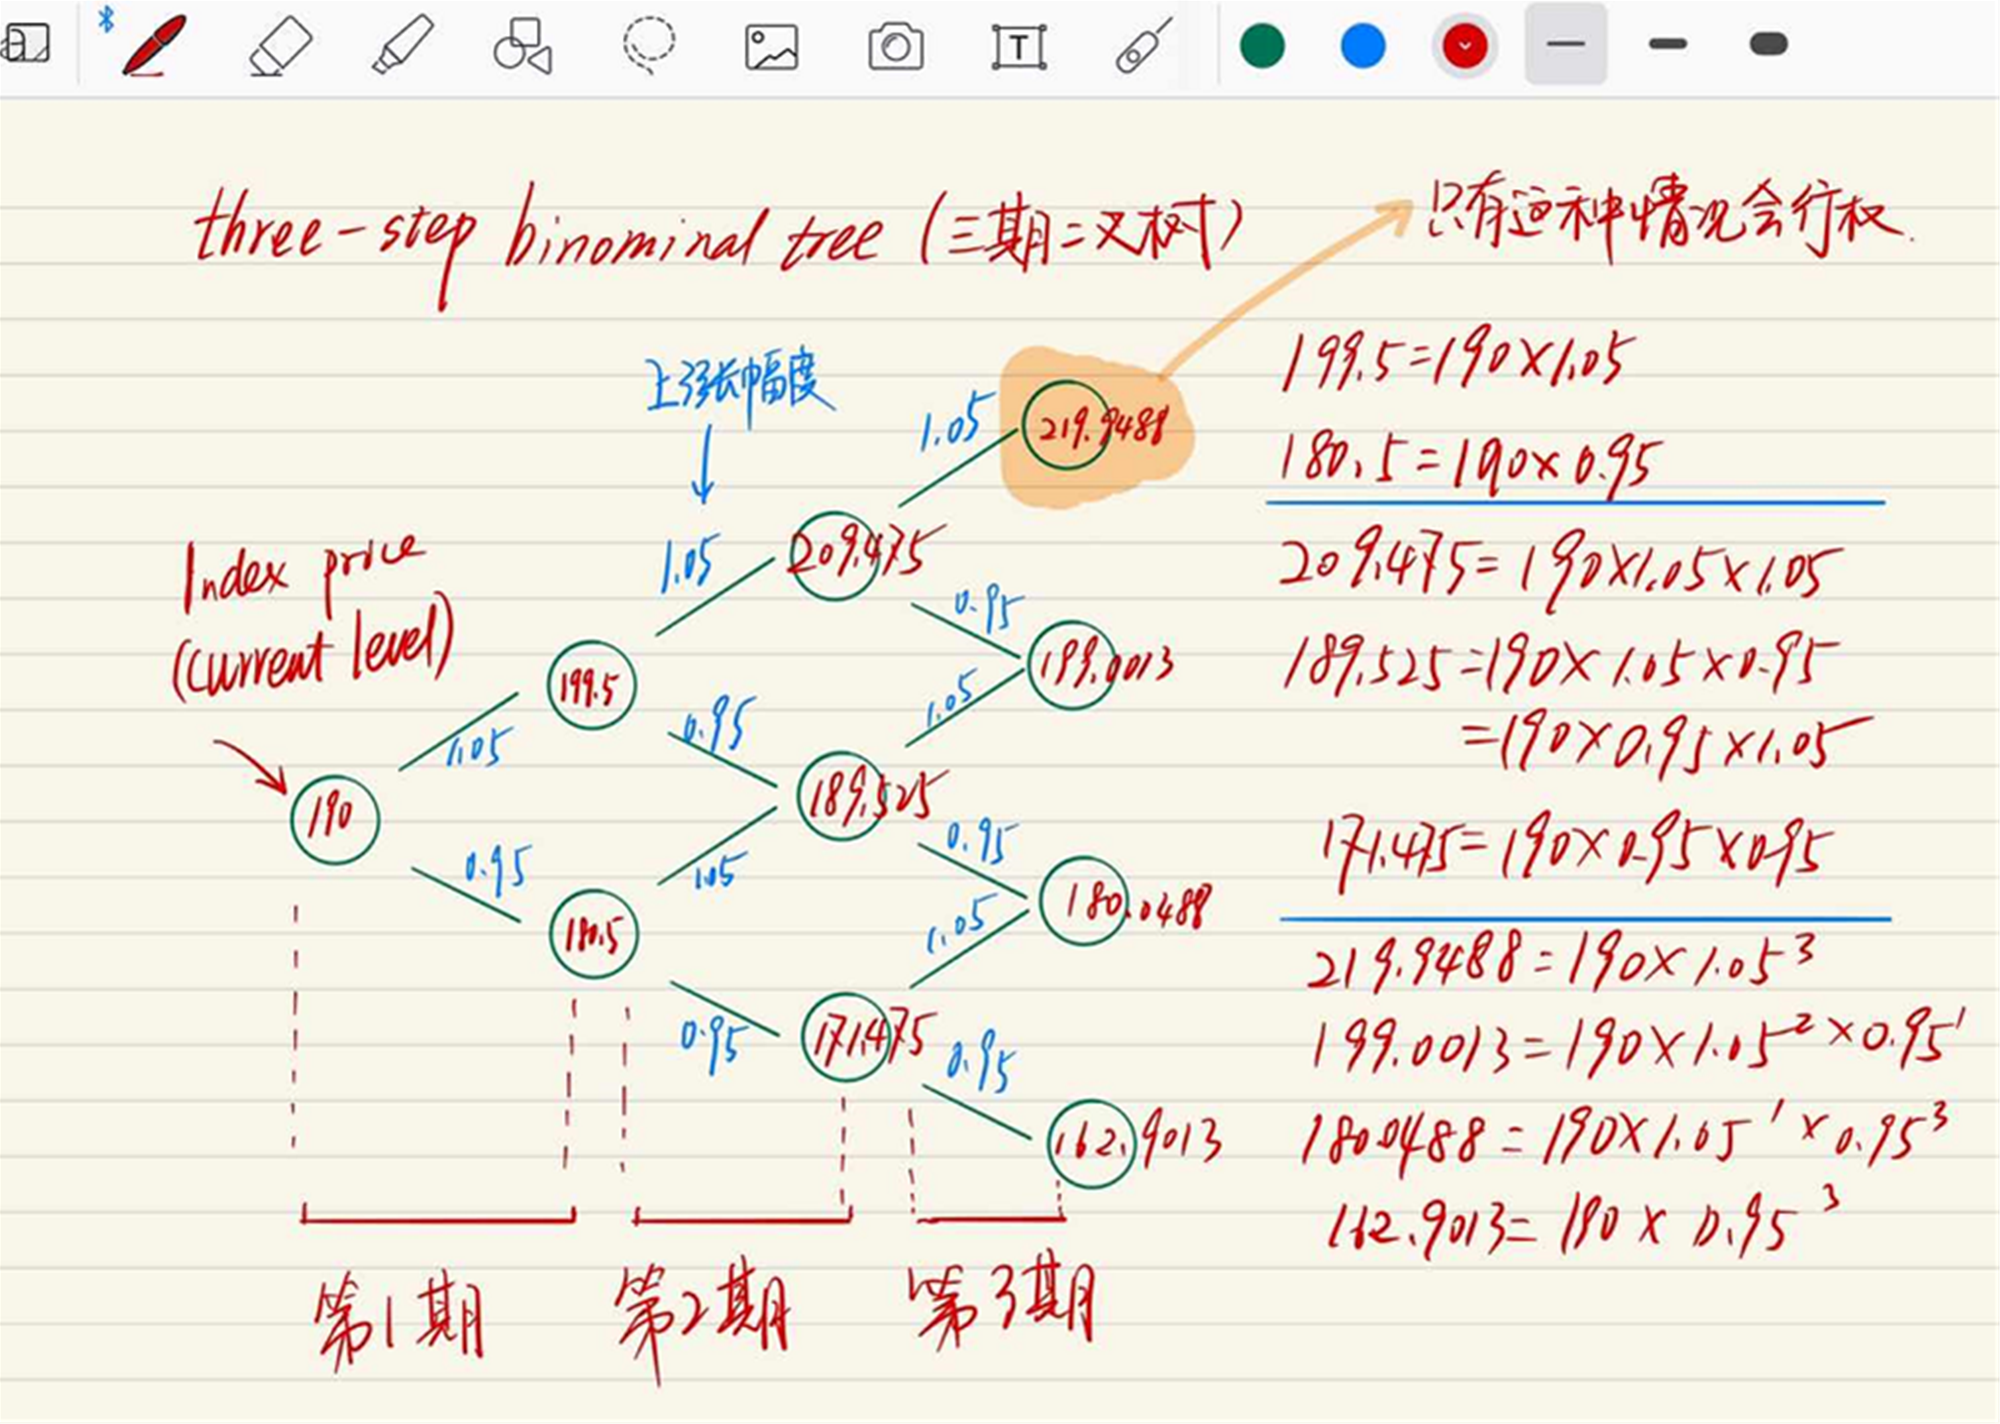 three-step binominal tree (三期二叉树)
只有这种情况会行权.
上涨幅度
Index price
(current level)
190
1.05
0.95
199.5
180.5
1.05
0.95
1.05
0.95
209.475
189.525
171.475
1.05
0.95
1.05
0.95
1.05
0.95
219.9488
199.0013
180.0488
162.9013
第1期
第2期
第3期
199.5=190×1.05
180.5=190×0.95
209.475=190×1.05×1.05
189.525=190×1.05×0.95
=190×0.95×1.05
171.475=190×0.95×0.95
219.9488=190×1.05³
199.0013=190×1.05²×0.95¹
180.0488=190×1.05¹×0.95³
162.9013=190×0.95³
T